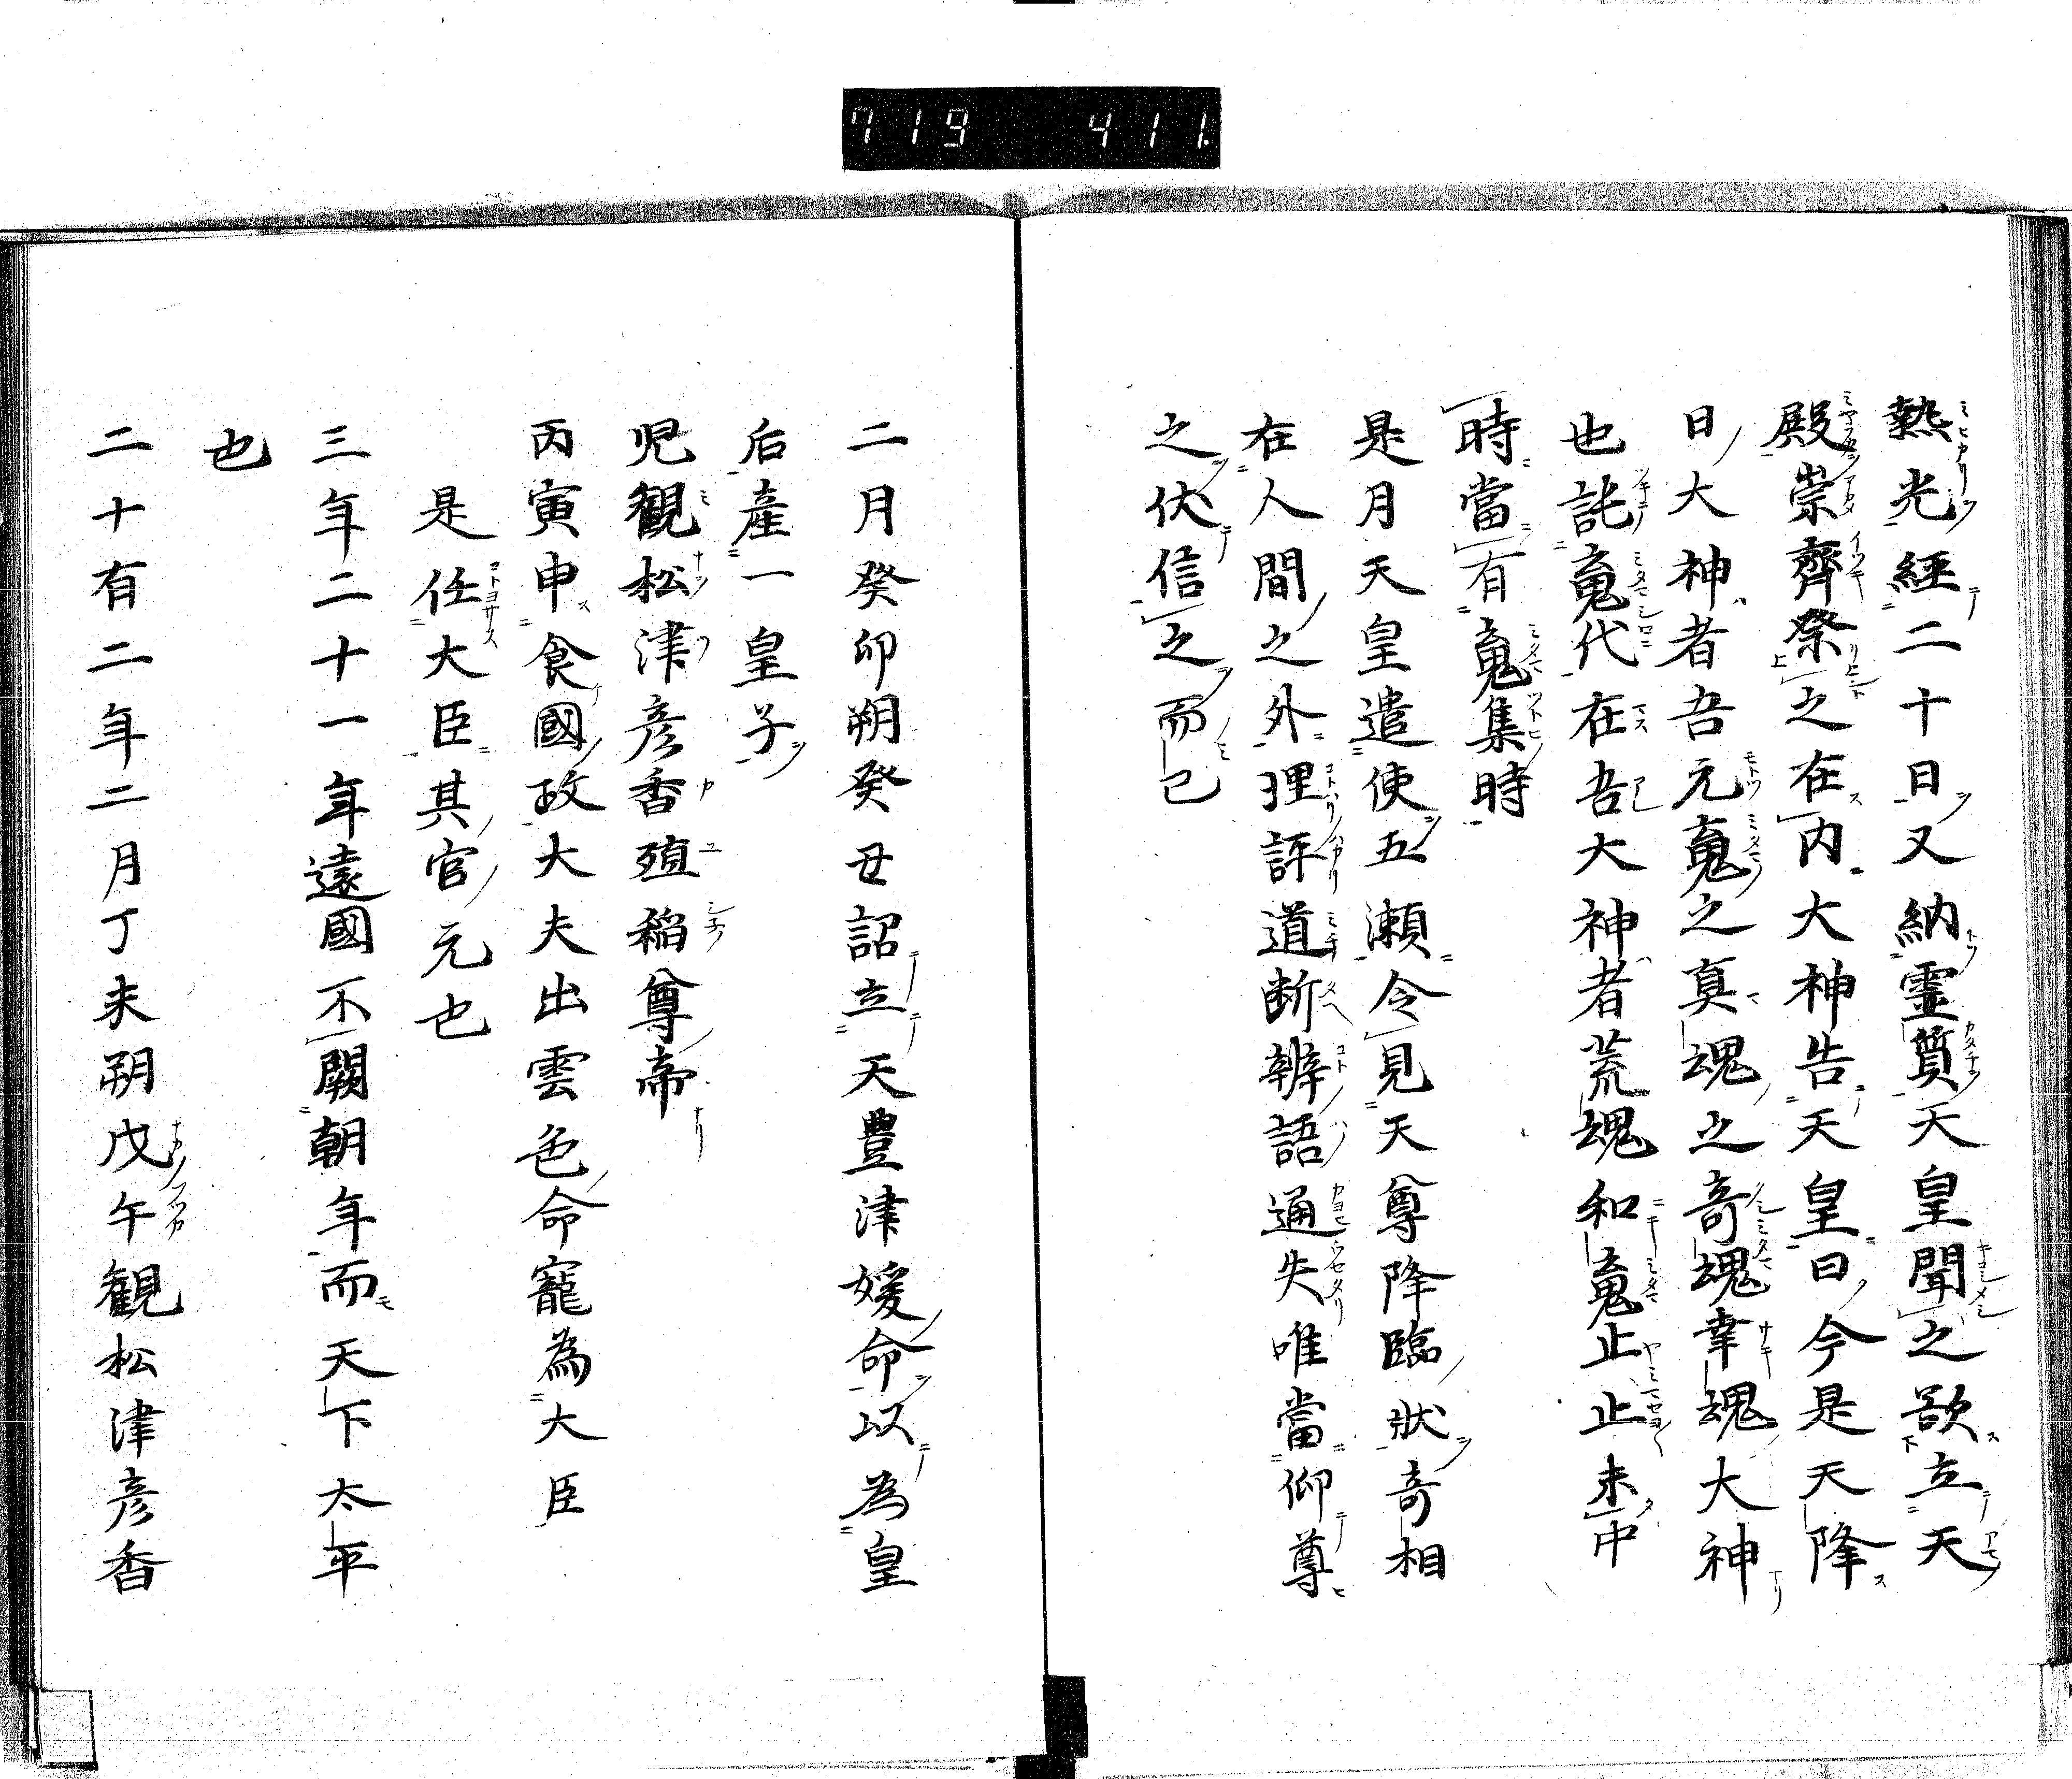 719 411.
熱光經二十日又納霊質天皇聞之欲立天
殿崇齊祭之在内大神告天皇曰今是天降
日大神者吾元䰟之真魂之奇魂幸魂大神
也託䰟代在吾大神者荒魂和䰟止止未中
時當有䰟集時
是月天皇遣使五瀬令見天尊降臨状奇相
在人間之外理評道断辨語通失唯當仰尊
之伏信之而已
二月癸卯朔癸丑詔立天豊津媛命以為皇
后産一皇子
児観松津彦香殖稲尊帝
丙寅申食國政大夫出雲色命寵為大臣
是任大臣其官元也
三年二十一年遠國不闕朝年而天下太平
也
二十有二年二月丁未朔戊午観松津彦香